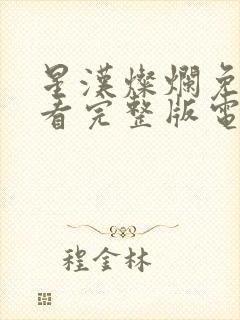 星漢燦爛免
看完整版電
程金林